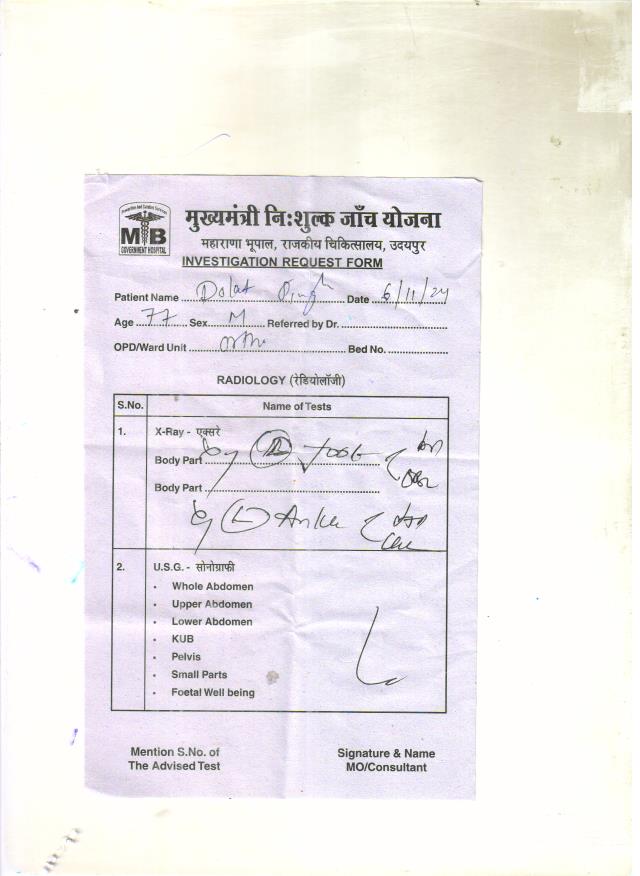 M B
GOVERNMENT HOSPITAL
मुख्यमंत्री निःशुल्क जाँच योजना
महाराणा भूपाल, राजकीय चिकित्सालय, उदयपुर
INVESTIGATION REQUEST FORM
Patient Name Dolat Singh Date 6/11/24
Age 77 Sex M Referred by Dr.
OPD/Ward Unit Ortho Bed No.
RADIOLOGY (रेडियोलॉजी)
S.No. Name of Tests
1. X-Ray - एक्सरे
Body Part foot
Body Part
(L) Ankle
2. U.S.G. - सोनोग्राफी
• Whole Abdomen
• Upper Abdomen
• Lower Abdomen
• KUB
• Pelvis
• Small Parts
• Foetal Well being
Mention S.No. of Signature & Name
The Advised Test MO/Consultant